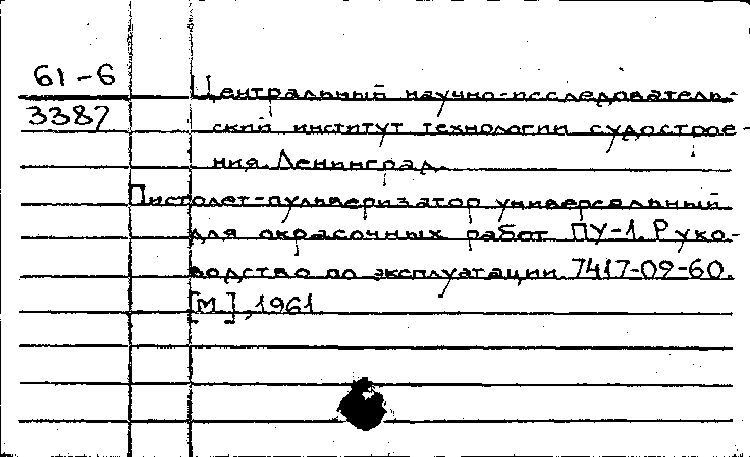 61-6
3387
Центральный научно-исследователь-
ский институт технологии судострое-
ния. Ленинград.
Пистолет-пульверизатор универсальный
для окрасочных работ ПУ-1. Руко-
водство по эксплуатации 7417-09-60.
[М.], 1961.